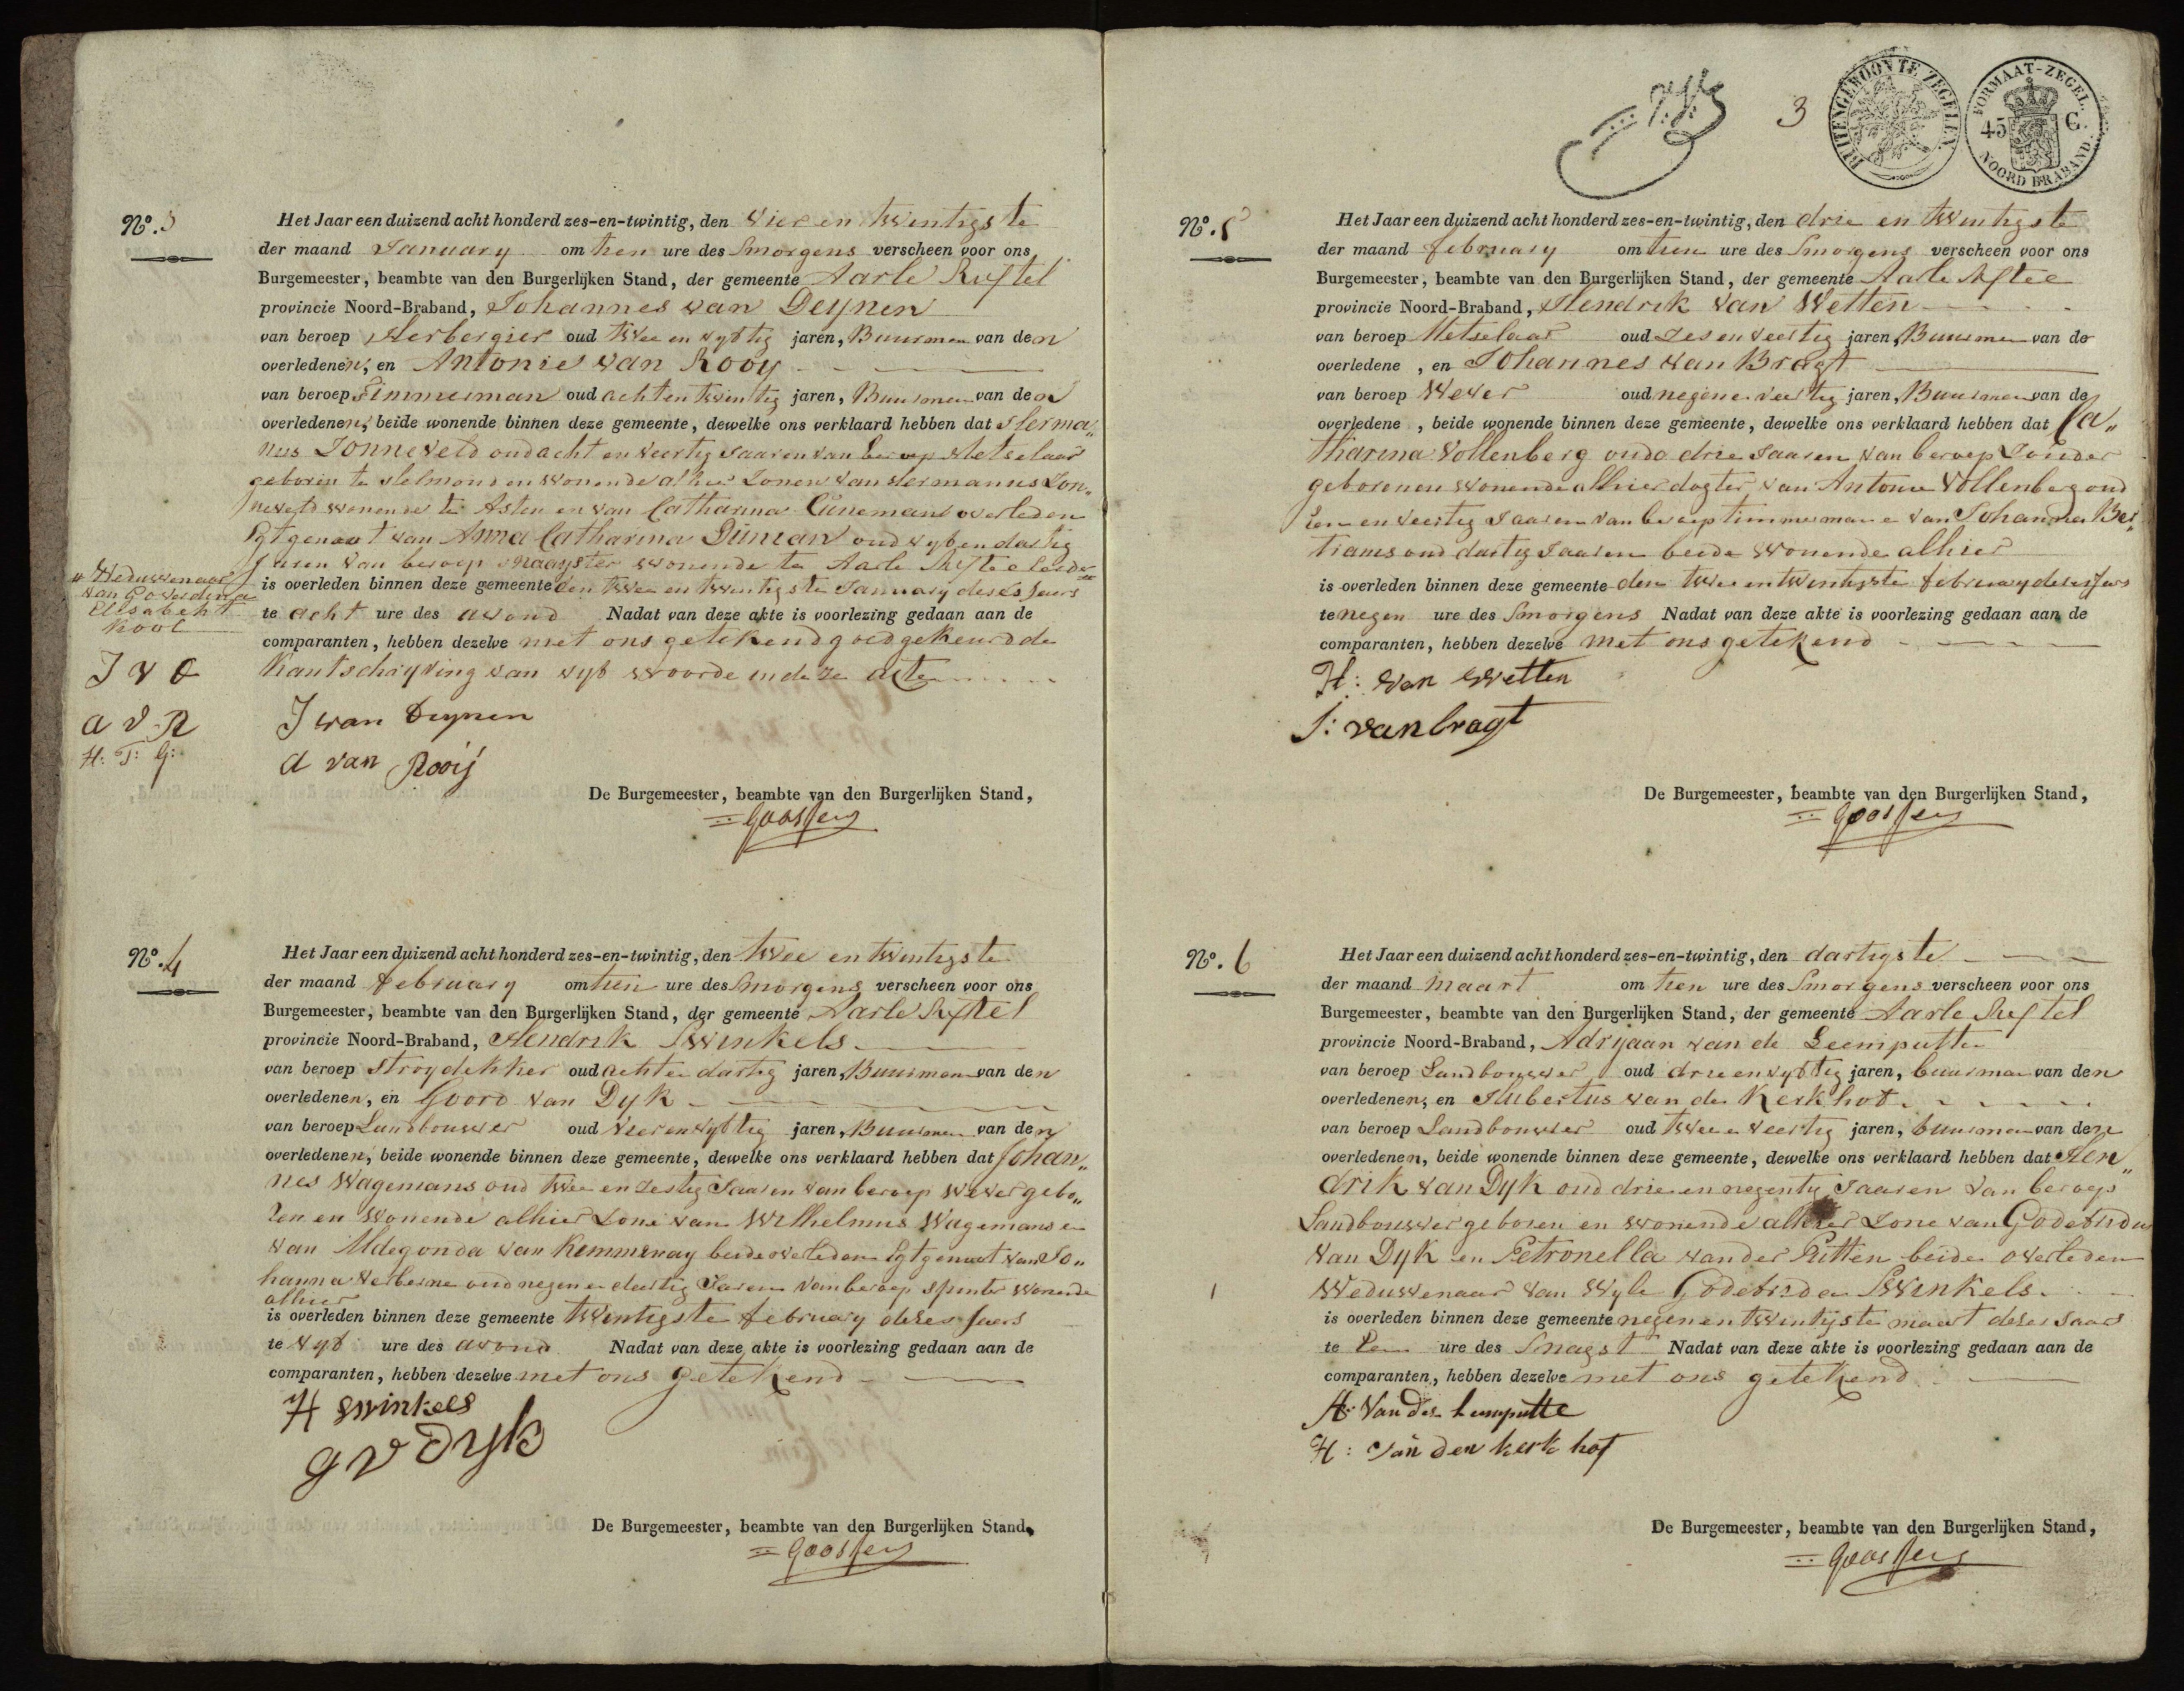 No. 3
Het Jaar een duizend acht honderd zes-en-twintig, den vier en twintigste
der maand January om tien ure des Smorgens verscheen voor ons
Burgemeester, beambte van den Burgerlijken Stand, der gemeente Aarle Rixtel
provincie Noord-Braband, Johannes van Deynen
van beroep Herbergier oud twee en vyftig jaren, Buurman van den
overledenen, en Antonie van Rooy
van beroep Timmerman oud acht en twintig jaren, Buurman van den
overledenen, beide wonende binnen deze gemeente, dewelke ons verklaard hebben dat Herma„
nus Zonneveld oud acht en veertig Jaaren van beroep Metselaar
geboren te Helmond en wonende alhier Zonen van Hermanus Zon„
neveld wonende te Asten en van Catharina Cuneman overleden
Egtgenoot van Anna Catharina Duman oud vyf en dartig
Jaren van beroep Naayster wonende te Aarle Rixtel eerder
„ Weduwenaar
van Goverdina
Elisabeht
Kool
is overleden binnen deze gemeente den twee en twintigste January deses Jaers
te acht ure des avond Nadat van deze akte is voorlezing gedaan aan de
comparanten, hebben dezelve met ons getekend goedgekeurd de
Kantschryving van vyf woorde in deze acte
J v D
a v R
H: T: G:
J van Deynen
a van Rooij
De Burgemeester, beambte van den Burgerlijken Stand,
Goossens
No. 4
Het Jaar een duizend acht honderd zes-en-twintig, den twee en twintigste
der maand february om tien ure des Smorgens verscheen voor ons
Burgemeester, beambte van den Burgerlijken Stand, der gemeente Aarle Rixtel
provincie Noord-Braband, Hendrik Swinkels
van beroep Stroydekker oud acht en dartig jaren, Buurman van den
overledenen, en Goord van Dyk
van beroep Landbouwer oud vier en vyftig jaren, Buurman van den
overledenen, beide wonende binnen deze gemeente, dewelke ons verklaard hebben dat Johan„
nes Wagemans oud twee en zestig Jaaren van beroep Wever gebo„
ren en wonende alhier Zone van Wilhelmus Wagemans en
van Aldegonda van Kemmenay beide overleden Egtgenoot van Jo„
hanna Verberne oud negen en dertig Jaren van beroep spinster wonende
alhier
is overleden binnen deze gemeente twintigste february deses Jaers
te vyf ure des avond Nadat van deze akte is voorlezing gedaan aan de
comparanten, hebben dezelve met ons getekend
H Swinkels
G v Dyk
De Burgemeester, beambte van den Burgerlijken Stand,
Goossens
3
BUITENGEWOON TE ZEGELEN.
FORMAAT-ZEGEL.
45 C.
NOORD BRABAND.
No. 5
Het Jaar een duizend acht honderd zes-en-twintig, den drie en twintigste
der maand february om tien ure des Smorgens verscheen voor ons
Burgemeester, beambte van den Burgerlijken Stand, der gemeente Aarle Rixtel
provincie Noord-Braband, Hendrik van Wetten
van beroep Metselaar oud zes en veertig jaren, Buurman van de
overledene, en Johannes van Bragt
van beroep Wever oud negen en veertig jaren, Buurman van de
overledene, beide wonende binnen deze gemeente, dewelke ons verklaard hebben dat Ca„
tharina Vollenberg oud drie Jaaren van beroep Zonder
geboren en wonende alhier dogter van Antonie Vollenberg oud
een en veertig Jaaren van beroep timmerman en van Johanna Ber„
trams oud dartig Jaaren beide wonende alhier
is overleden binnen deze gemeente den twee en twintigste february deses Jaers
te negen ure des Smorgens Nadat van deze akte is voorlezing gedaan aan de
comparanten, hebben dezelve met ons getekend
H: van Wetten
J: van bragt
De Burgemeester, beambte van den Burgerlijken Stand,
Goossens
No. 6
Het Jaar een duizend acht honderd zes-en-twintig, den dartigste
der maand Maart om tien ure des Smorgens verscheen voor ons
Burgemeester, beambte van den Burgerlijken Stand, der gemeente Aarle Rixtel
provincie Noord-Braband, Adryaan van de Leemputte
van beroep Landbouwer oud drie en vyftig jaren, buurman van den
overledenen, en Hubertus van de Kerkhof
van beroep Landbouwer oud twee en veertig jaren, buurman van den
overledenen, beide wonende binnen deze gemeente, dewelke ons verklaard hebben dat Hen„
drik van Dyk oud drie en negentig Jaaren van beroep
Landbouwer geboren en wonende alhier Zone van Godefridus
van Dyk en Petronella van der Putten beide overleden
Weduwenaar van Wyle Godefrida Swinkels
is overleden binnen deze gemeente negen en twintigste maart deses Jaars
te Een ure des Snagst Nadat van deze akte is voorlezing gedaan aan de
comparanten, hebben dezelve met ons getekend
A: van der Leemputte
H: van den kerkhof
De Burgemeester, beambte van den Burgerlijken Stand,
Goossens